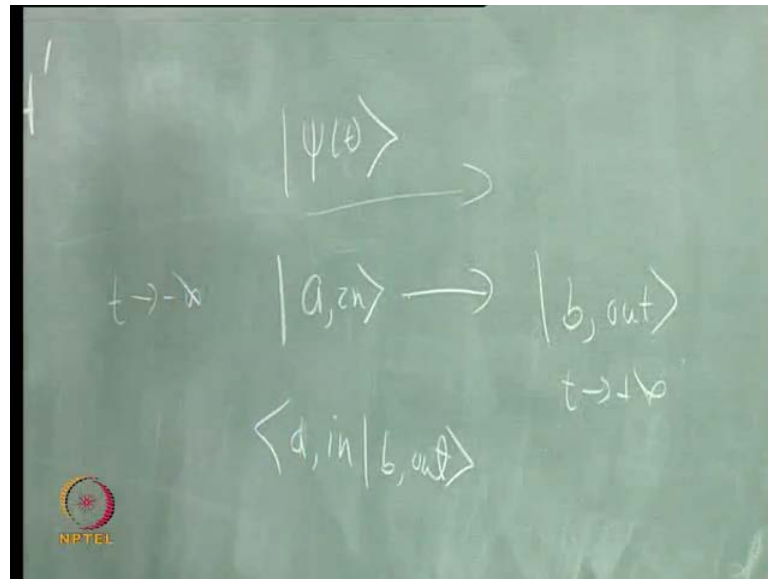 |ψ(t)⟩
t → -∞ |a, in⟩ → |b, out⟩
t → +∞
⟨a, in|b, out⟩
NPTEL